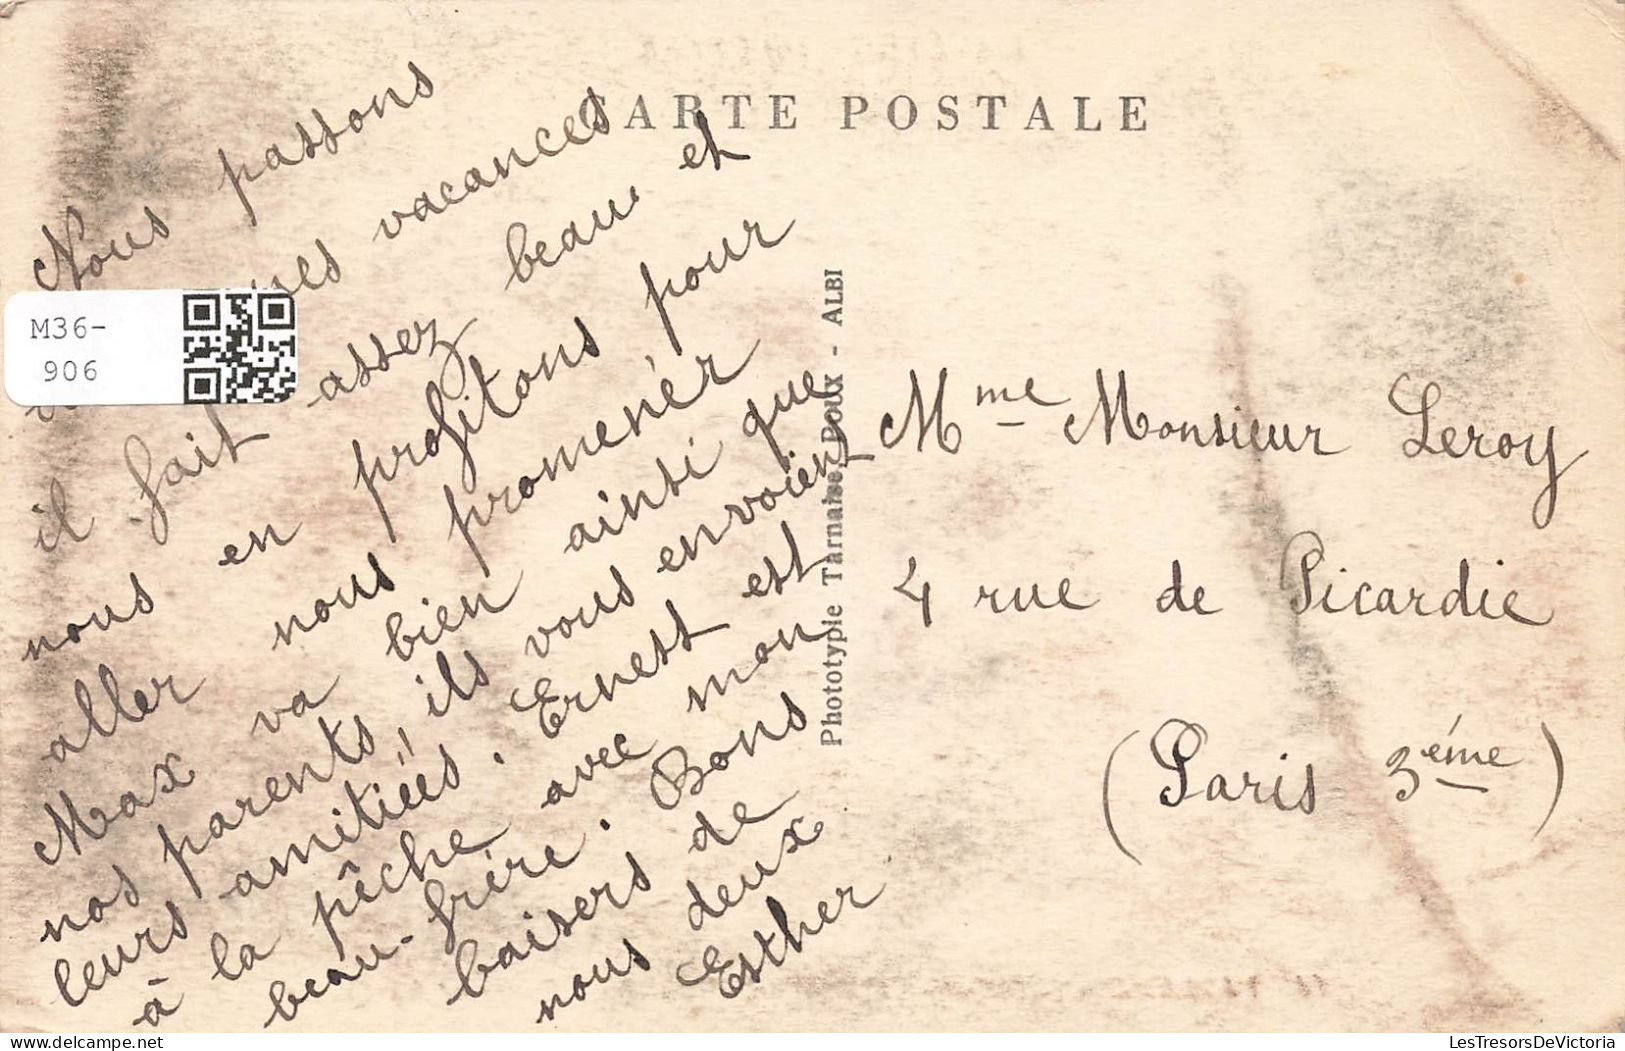 CARTE POSTALE
Nous passons
vacances
il fait assez beau et
nous en profitons pour
aller nous promenér
Max va bien ainsi que
nos parents, ils vous envoient
leurs amitiées. Ernest est
à la pêche avec mon
beau-frère. Bons
baisers de
nous deux
Esther
Phototypie Tarnaise. DOUX - ALBI
Mme Monsieur Leroy
4 rue de Picardie
(Paris 3éme)
M36-
906
LesTresorsDeVictoria
delcampe.net